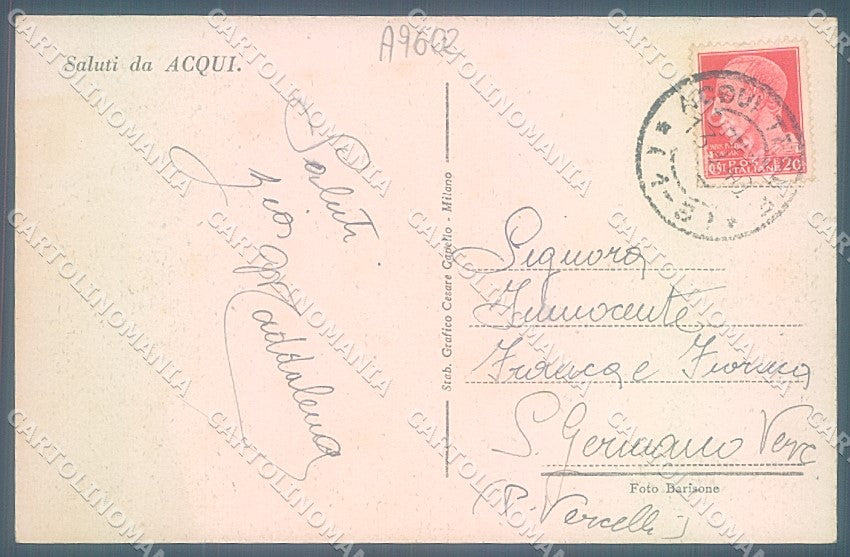 Saluti da ACQUI.
A9602
Saluti
zio G Maddalena
Stab. Grafico Cesare Capello - Milano
ACQUI
POSTE
ITALIANE
20
Signora
Innocente
Franca e
S. Germano Verc
Foto Barisone
(P. Vercelli)
CARTOLINOMANIA